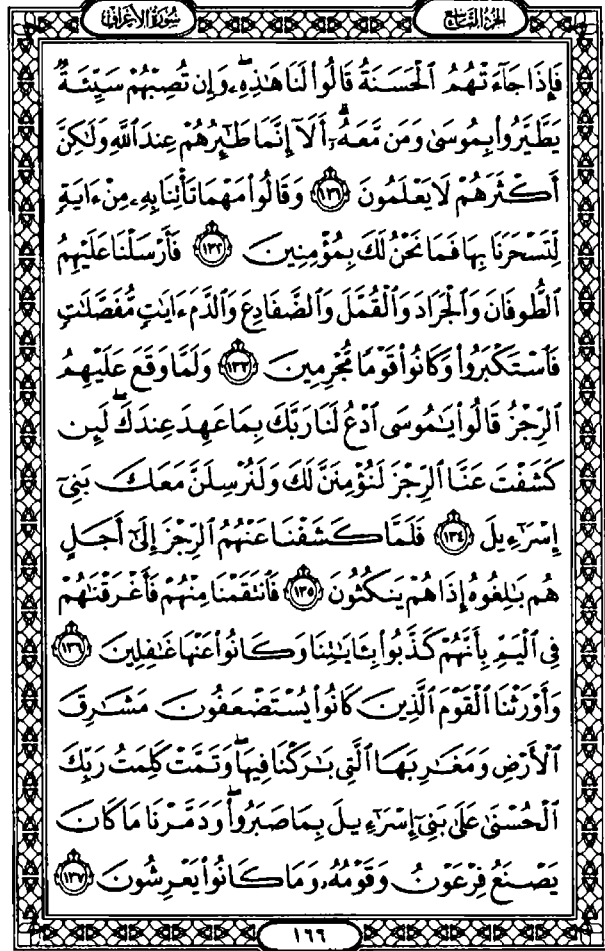 سُورَةُ الأَعْرَافِ
الجُزْءُ التَّاسِعُ
فَإِذَا جَآءَتْهُمُ ٱلْحَسَنَةُ قَالُوا۟ لَنَا هَـٰذِهِۦ ۖ وَإِن تُصِبْهُمْ سَيِّئَةٌ
يَطَّيَّرُوا۟ بِمُوسَىٰ وَمَن مَّعَهُۥٓ ۗ أَلَآ إِنَّمَا طَـٰٓئِرُهُمْ عِندَ ٱللَّهِ وَلَـٰكِنَّ
أَكْثَرَهُمْ لَا يَعْلَمُونَ ﴿١٣١﴾ وَقَالُوا۟ مَهْمَا تَأْتِنَا بِهِۦ مِنْ ءَايَةٍ
لِّتَسْحَرَنَا بِهَا فَمَا نَحْنُ لَكَ بِمُؤْمِنِينَ ﴿١٣٢﴾ فَأَرْسَلْنَا عَلَيْهِمُ
ٱلطُّوفَانَ وَٱلْجَرَادَ وَٱلْقُمَّلَ وَٱلضَّفَادِعَ وَٱلدَّمَ ءَايَـٰتٍ مُّفَصَّلَـٰتٍ
فَٱسْتَكْبَرُوا۟ وَكَانُوا۟ قَوْمًا مُّجْرِمِينَ ﴿١٣٣﴾ وَلَمَّا وَقَعَ عَلَيْهِمُ
ٱلرِّجْزُ قَالُوا۟ يَـٰمُوسَى ٱدْعُ لَنَا رَبَّكَ بِمَا عَهِدَ عِندَكَ ۖ لَئِن
كَشَفْتَ عَنَّا ٱلرِّجْزَ لَنُؤْمِنَنَّ لَكَ وَلَنُرْسِلَنَّ مَعَكَ بَنِىٓ
إِسْرَٰٓءِيلَ ﴿١٣٤﴾ فَلَمَّا كَشَفْنَا عَنْهُمُ ٱلرِّجْزَ إِلَىٰٓ أَجَلٍ
هُم بَـٰلِغُوهُ إِذَا هُمْ يَنكُثُونَ ﴿١٣٥﴾ فَٱنتَقَمْنَا مِنْهُمْ فَأَغْرَقْنَـٰهُمْ
فِى ٱلْيَمِّ بِأَنَّهُمْ كَذَّبُوا۟ بِـَٔايَـٰتِنَا وَكَانُوا۟ عَنْهَا غَـٰفِلِينَ ﴿١٣٦﴾
وَأَوْرَثْنَا ٱلْقَوْمَ ٱلَّذِينَ كَانُوا۟ يُسْتَضْعَفُونَ مَشَـٰرِقَ
ٱلْأَرْضِ وَمَغَـٰرِبَهَا ٱلَّتِى بَـٰرَكْنَا فِيهَا ۖ وَتَمَّتْ كَلِمَتُ رَبِّكَ
ٱلْحُسْنَىٰ عَلَىٰ بَنِىٓ إِسْرَٰٓءِيلَ بِمَا صَبَرُوا۟ ۖ وَدَمَّرْنَا مَا كَانَ
يَصْنَعُ فِرْعَوْنُ وَقَوْمُهُۥ وَمَا كَانُوا۟ يَعْرِشُونَ ﴿١٣٧﴾
١٦٦